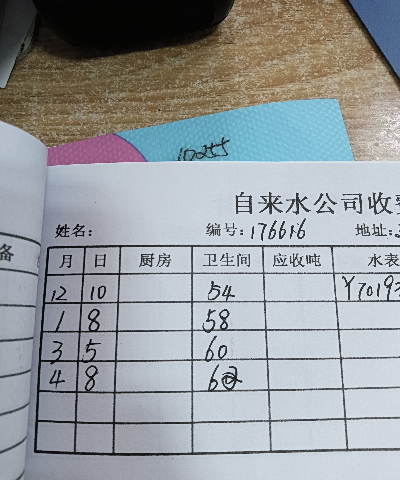 10255
自来水公司收
姓名: 编号: 176616 地址:
备
月 日 厨房 卫生间 应收吨 水表
12 10 54 Y7019
1 8 58
3 5 60
4 8